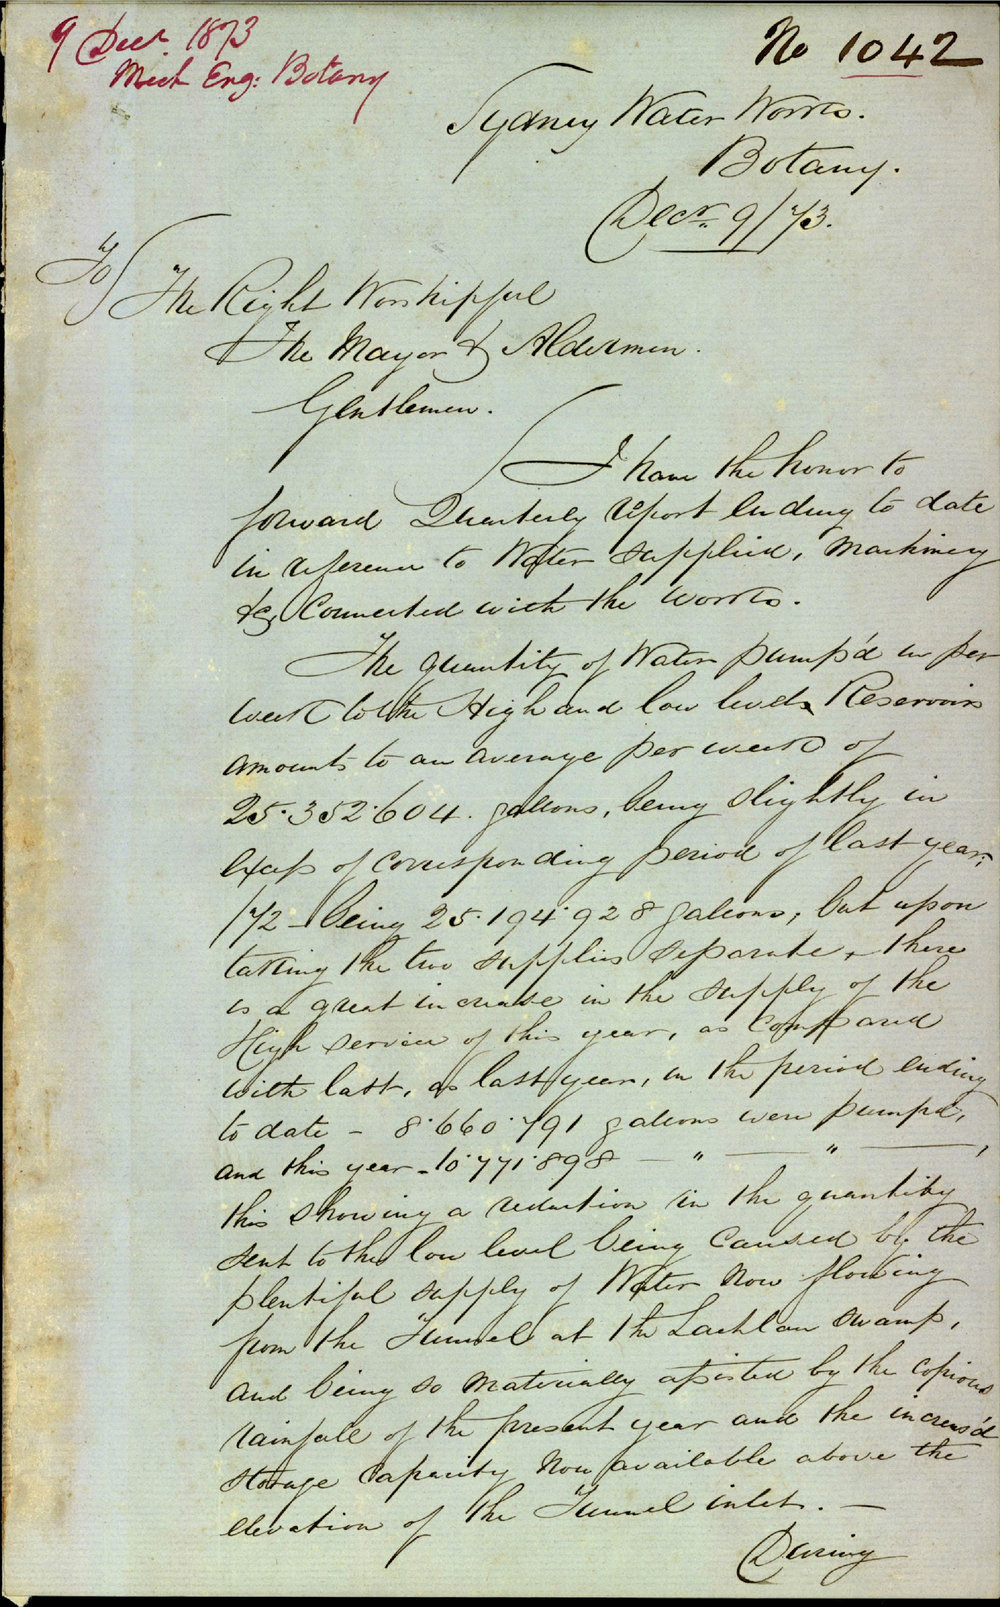 9 Decr. 1873
Mech Eng: Botany
No 1042
Sydney Water Works.
Botany.
Decr. 9/73.
To/
The Right Worshipful
The Mayor & Aldermen.
Gentlemen.
I have the honor to
forward Quarterly report ending to date
in reference to Water supplied, Machinery
&c, Connected with the works.
The quantity of Water pump'd up per
week to the High and low levels Reservoirs
amounts to an average per week of
25.352.604. gallons, being slightly in
excess of corresponding period of last year,
/72 - being 25.194.928 gallons, but upon
taking the two supplies separate, there
is a great increase in the supply of the
High service of this year, as compared
with last, as last year, in the period ending
to date - 8.660.791 gallons were pumpd,
and this year - 10.771.898 — " — " —,
this showing a reduction in the quantity
sent to the low level being caused by the
plentiful supply of Water now flowing
from the Tunnel at the Lachlan swamp,
and being so materially assisted by the copious
rainfall of the present year and the increas'd
storage capacity now available above the
elevation of the Tunnel inlet. —
During